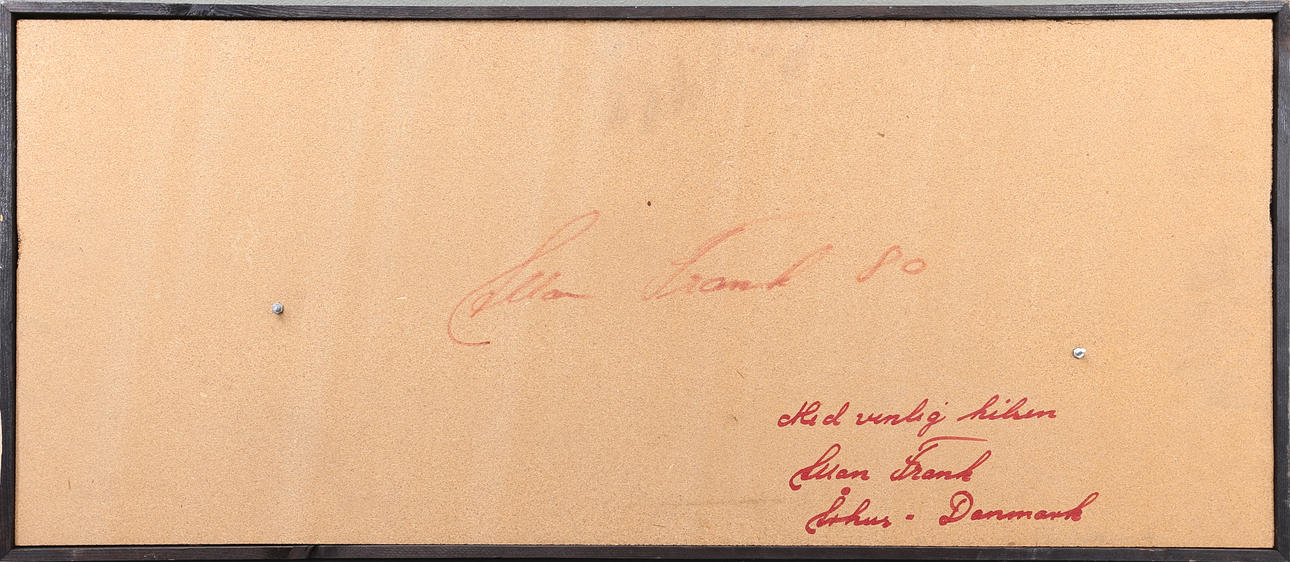 Allan Frank 80
Med venlig hilsen
Allan Frank
Århus - Danmark